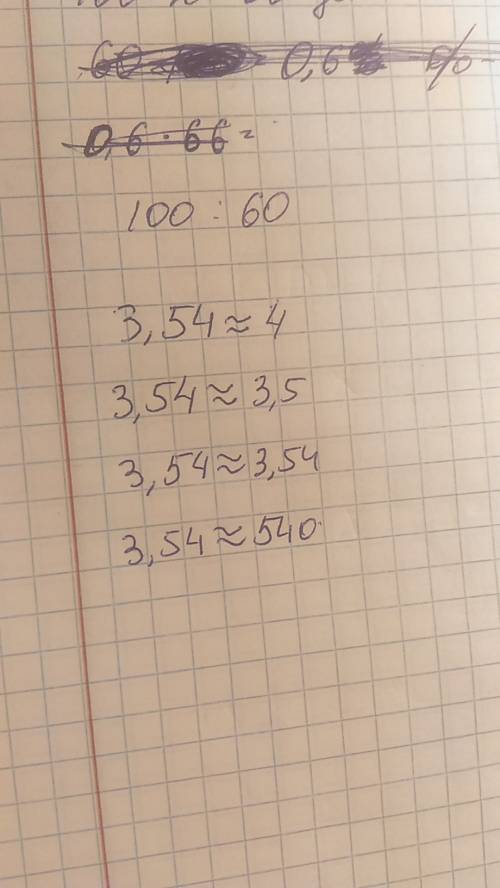 60 0,6 %
0,6 · 66 =
100 : 60
3,54 ≈ 4
3,54 ≈ 3,5
3,54 ≈ 3,54
3,54 ≈ 540